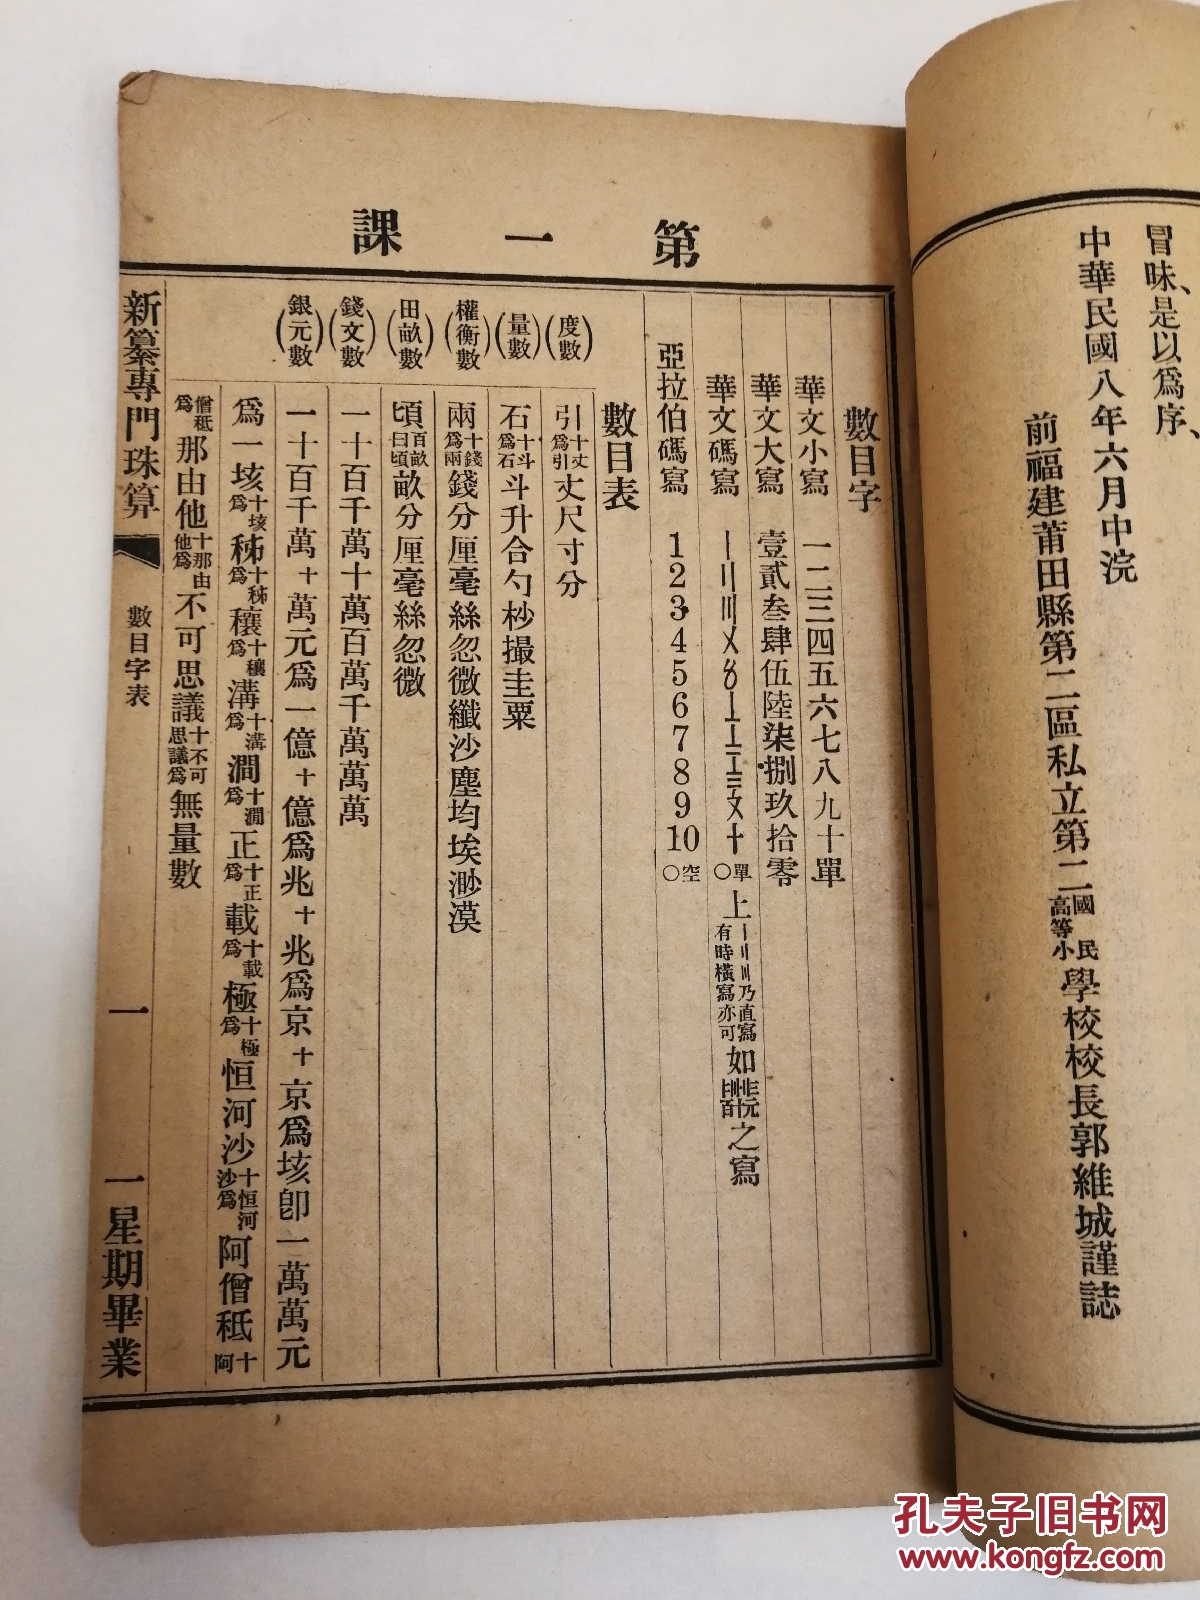 冒昧、是以爲序、
中華民國八年六月中浣
前福建莆田縣第二區私立第二國民高等小學校校長郭維城謹誌
第一課
數目字
華文小寫 一二三四五六七八九十單
華文大寫 壹貳叁肆伍陸柒捌玖拾零
華文碼寫 〡〢〣〤〥〦〧〨〩十 單○ 上〡〢〣乃直寫有時橫寫亦可如之寫
亞拉伯碼寫 1 2 3 4 5 6 7 8 9 10 空○
數目表
(度數) 引十丈爲引丈尺寸分
(量數) 石十斗爲石斗升合勺杪撮圭粟
(權衡數) 兩十錢爲兩錢分厘毫絲忽微纖沙塵均埃渺漠
(田畝數) 頃百畝曰頃畝分厘毫絲忽微
(錢文數) 一十百千萬十萬百萬千萬萬萬
(銀元數) 一十百千萬十萬元爲一億十億爲兆十兆爲京十京爲垓卽一萬萬元
爲一垓十垓爲秭十秭爲穰十穰爲溝十溝爲澗十澗爲正十正爲載十載爲極十極爲恒河沙十恒河沙爲阿僧秪十阿
僧秪爲那由他十那由他爲不可思議十不可思議爲無量數
新纂專門珠算
數目字表
一
一星期畢業
孔夫子旧书网
www.kongfz.com